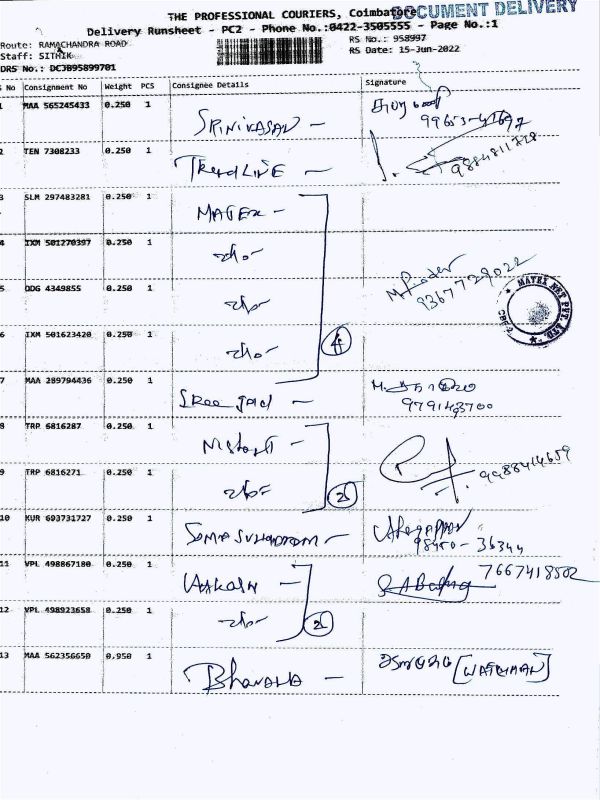 THE PROFESSIONAL COURIERS, Coimbatore DOCUMENT DELIVERY
Delivery Runsheet - PC2 - Phone No.:0422-3505555 - Page No.:1
Route: RAMACHANDRA ROAD RS No.: 958997
Staff: SITHIK RS Date: 15-Jun-2022
DRS No.: DCJB95899701
S No Consignment No Weight PCS Consignee Details Signature
1 MAA 565245433 0.250 1 SRINIVASAN -
2 TEN 7308233 0.250 1 TRENDLINE - 9884811728
3 SLM 297483281 0.250 1 MATEX -
4 IXM 501270397 0.250 1
5 ODG 4349855 0.250 1 9367729022
MATEX NET PVT. LTD
6 IXM 501623420 0.250 1 4
7 MAA 289794436 0.250 1 Sree - 9791493700
8 TRP 6816287 0.250 1
9 TRP 6816271 0.250 1 2 9988414659
10 KUR 693731727 0.250 1 SOMASUNDARAM - Alagappan
98450-36344
11 VPL 498867180 0.250 1 AAKASH - 7667418502
12 VPL 498923658 0.250 1 2
13 MAA 562356650 0.950 1 Bhavana - [WATCHMAN]